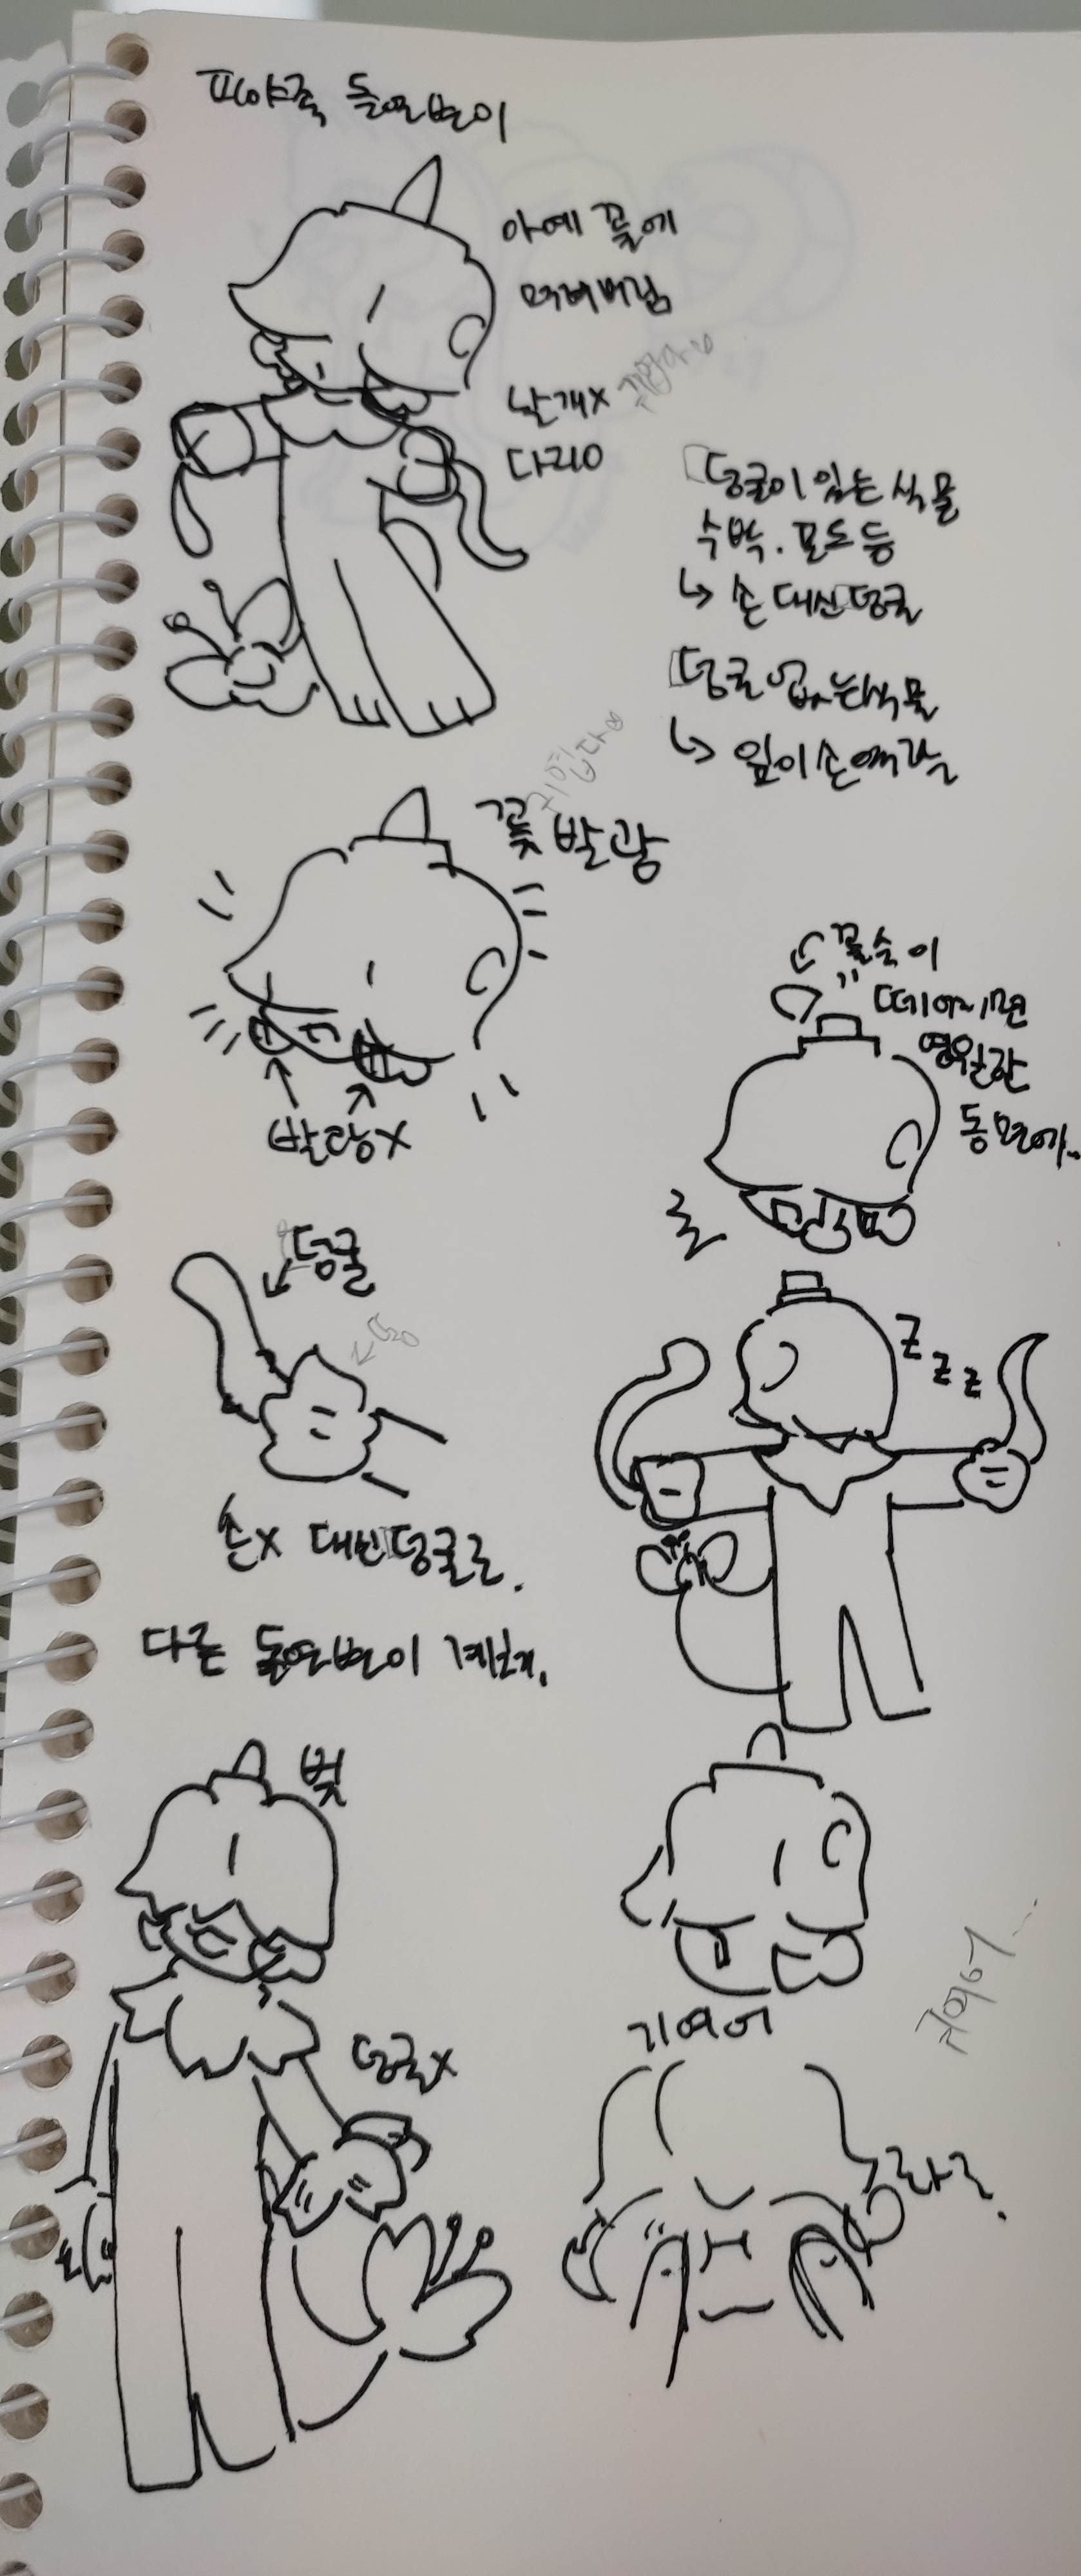 피야족 돌연변이
아예 꽃에
먹혀버림
날개x
다리o
덩굴이 있는 식물
수박. 포도 등
↳ 손 대신 덩굴
덩굴 없는 식물
↳ 잎이 손 역할
귀엽다
꽃 발광
꽃술이
떼어지면
영원한
동면에..
발광x
덩굴
Z z z
손x 대신 덩굴로.
다른 돌연변이 개체.
벚
덩굴x
기여어
귀여워...